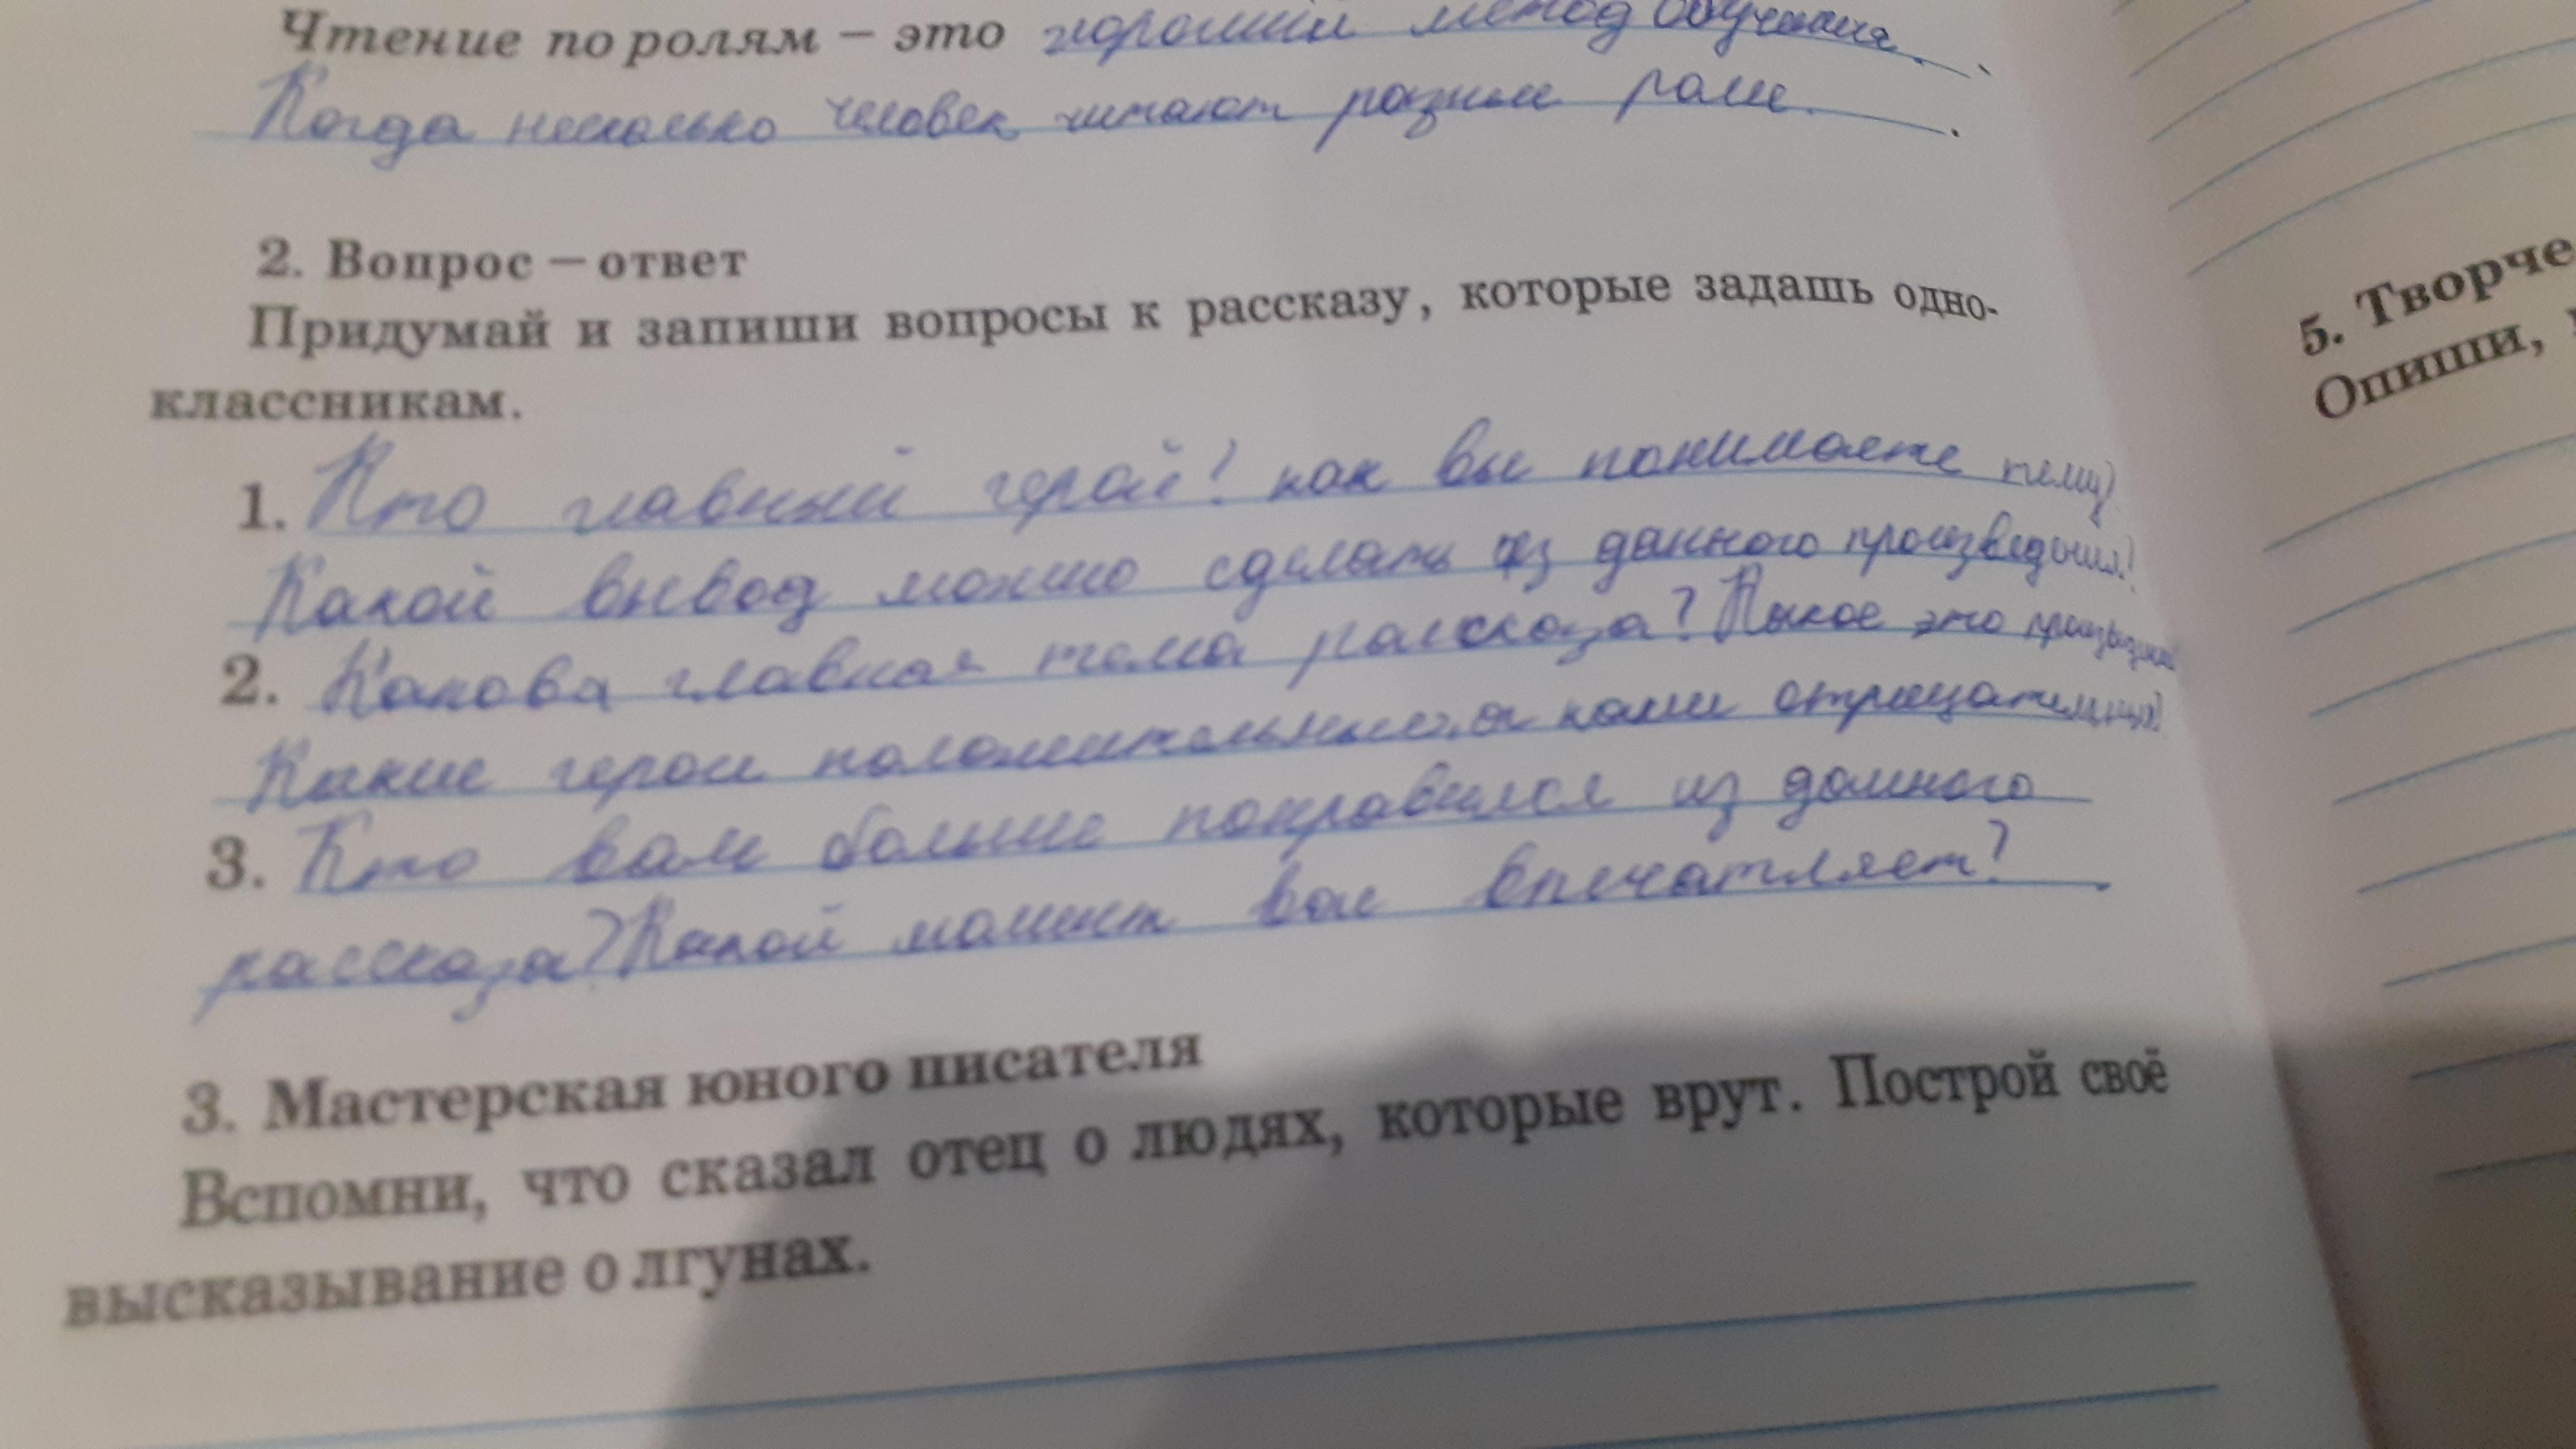 Чтение по ролям – это хороший метод обучения.
Когда несколько человек читают разные роли.
2. Вопрос – ответ
Придумай и запиши вопросы к рассказу, которые задашь одно-
классникам.
1. Кто главный герой? как вы понимаете тему?
Какой вывод можно сделать из данного произведения?
2. Какова главная тема рассказа? Какое это
Какие герои положительные, а какие отрицательные?
3. Кто вам больше понравился из данного
рассказа? Какой момент вас впечатляет?
3. Мастерская юного писателя
Вспомни, что сказал отец о людях, которые врут. Построй своё
высказывание о лгунах.
5. Творче
Опиши,